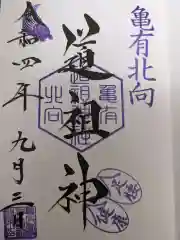 亀有北向
道祖神
亀有
道祖神社
北向
令和四年九月三日